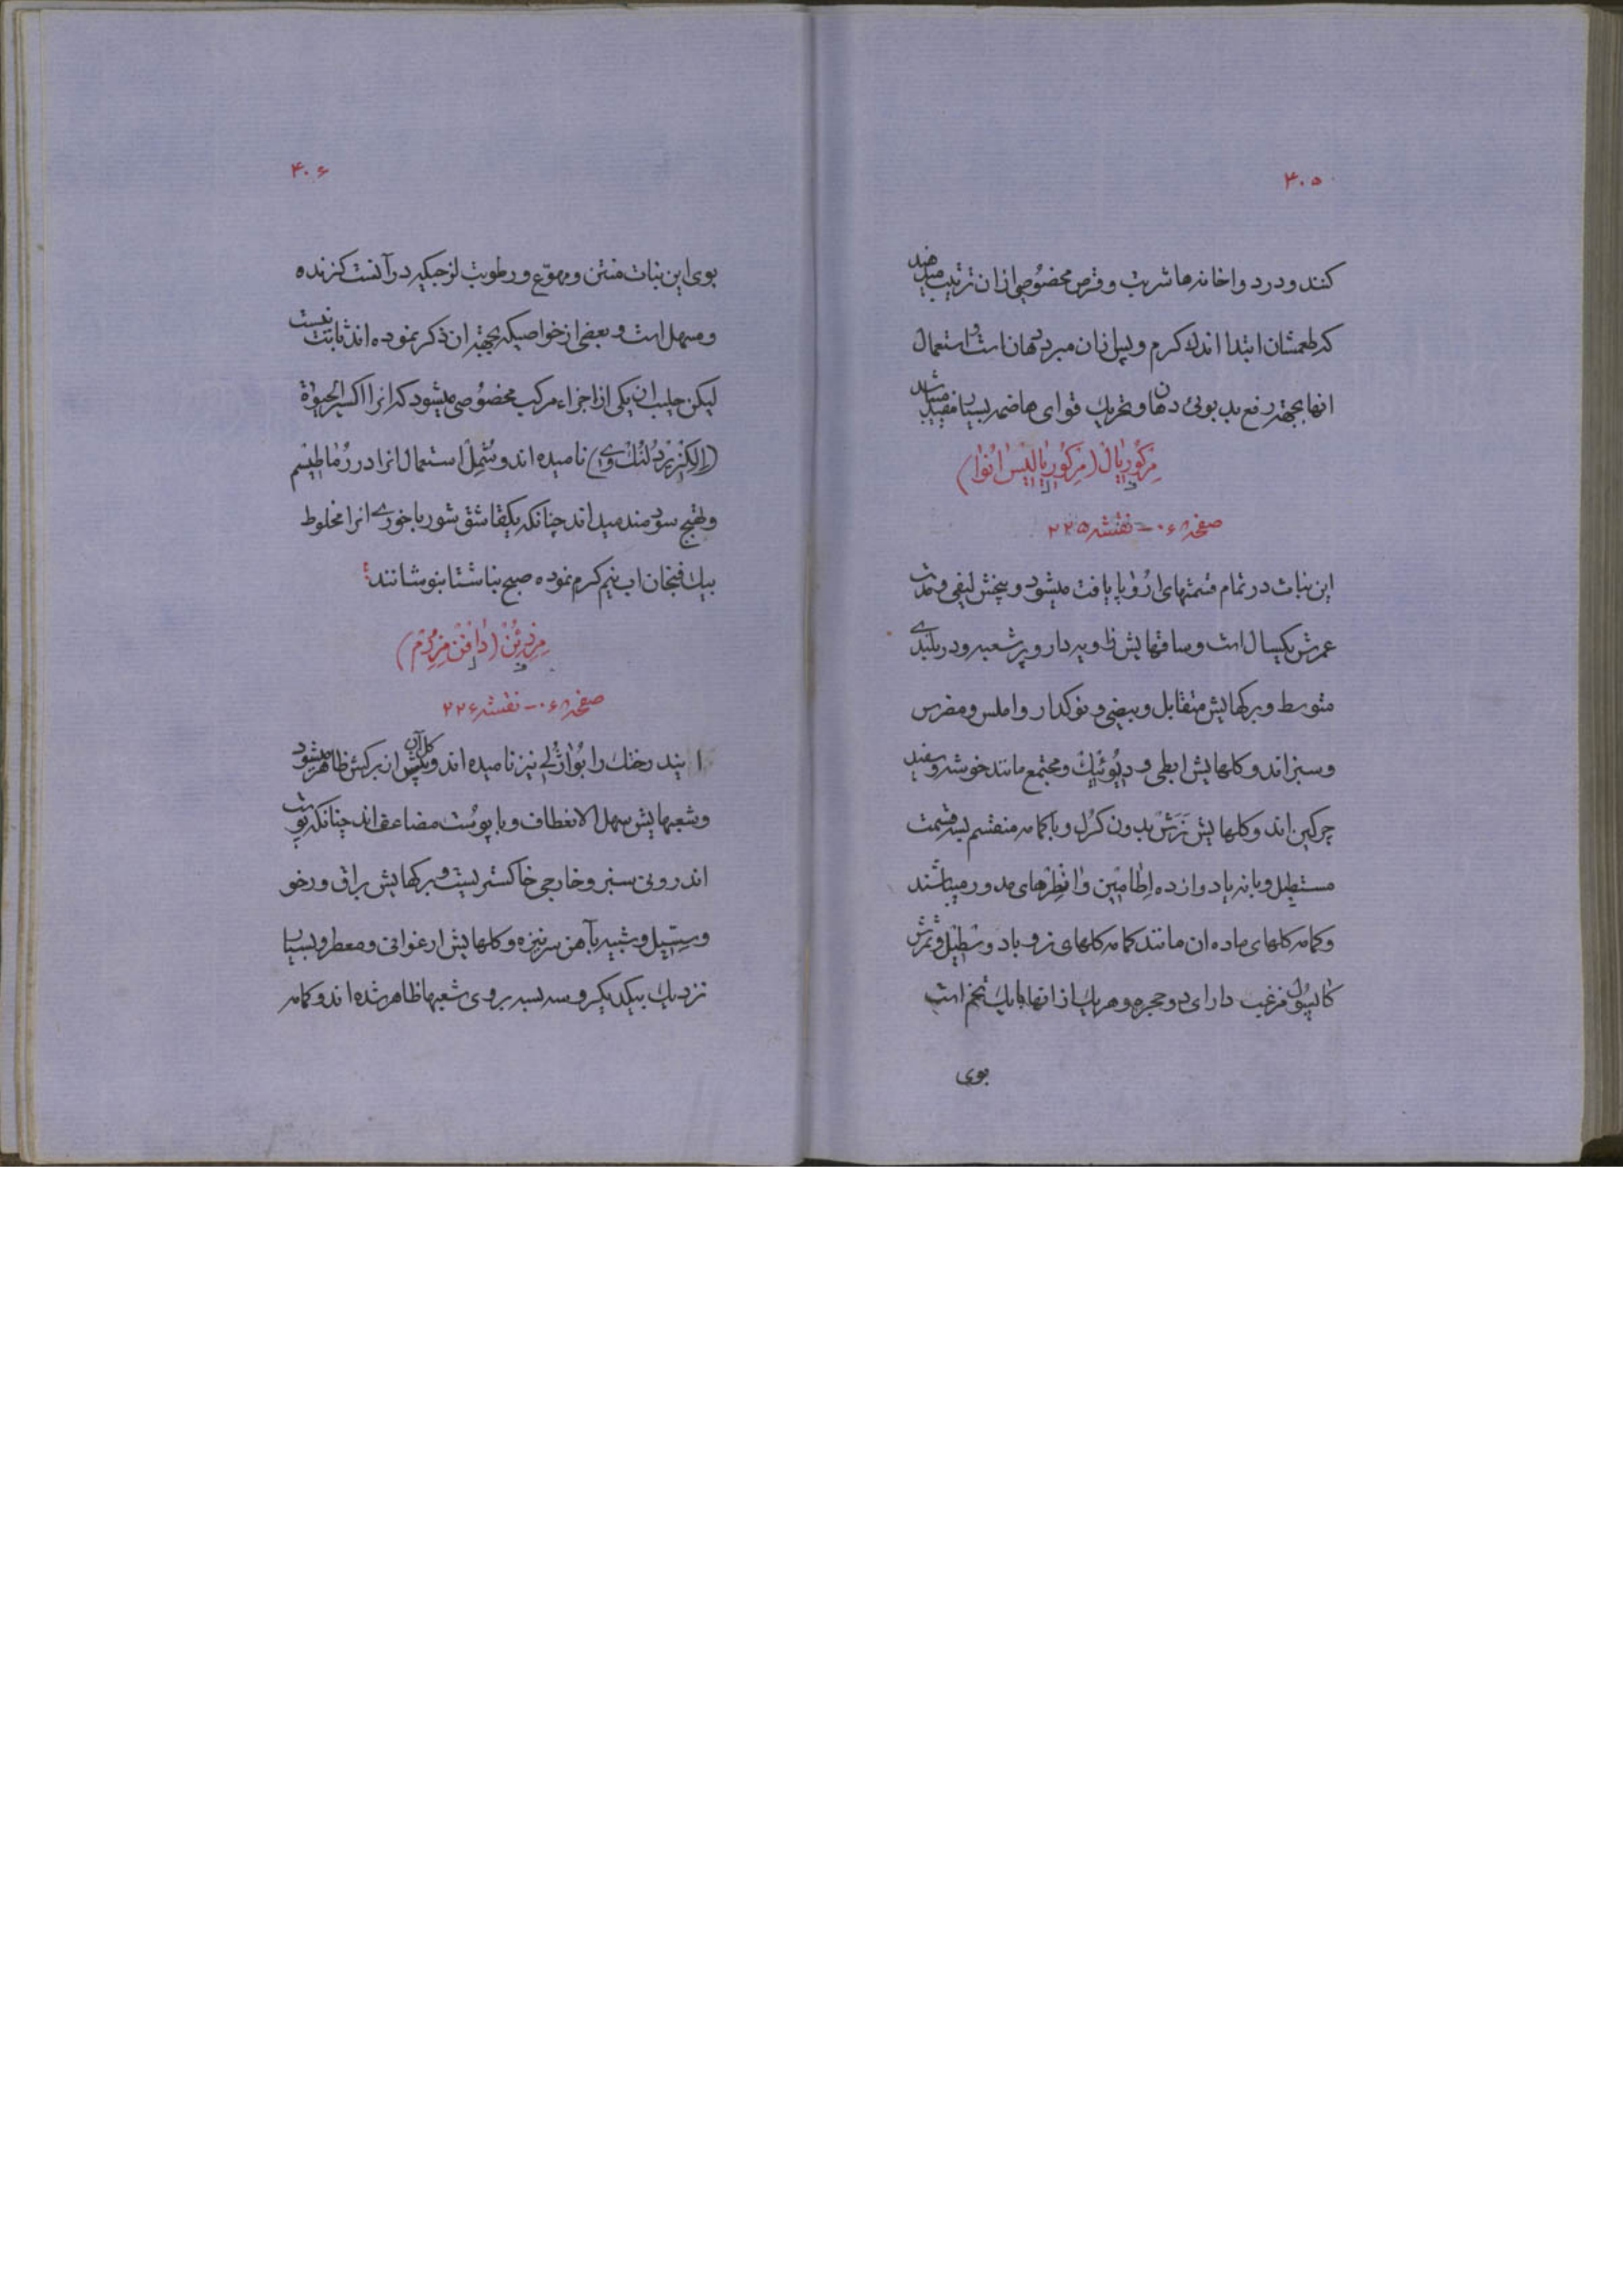 ۴۰۵
کنند و در دواخانه ها شربت و قرص مخصوصی ازان ترتیب میدهند
که طعمشان ابتدا اندک کرم و پس ازان مبرد دهان است و استعمال
انها بجهته رفع بد بوئی دهان و تحریک قوای هاضمه بسیار مفید میباشد
مرکوریال (مرکوریالیس انوا)
صفحه ۰۶۸ - نقشه ۲۲۵
این نبات در تمام قسمتهای اروپا یافت میشود و بیخش لیفی و مدت
عمرش یکسال است و ساقهایش زاویه دار و پر شعبه و در بلندی
متوسط و برکهایش متقابل و بیضی و نوکدار و املس و مضرس
و سبز اند و کلهایش ابطی و دیوئیک و مجتمع مانند خوشه و سفید
چرکین اند و کلهایش نرش بدون کرل و با کمامه منقسم بسه قسمت
مستطیل و با نه یا دوازده اطامین و انطرهای مدور میباشند
و کمامه کلهای ماده ان مانند کمامه کلهای نر و با دو سطیل و ثمرش
کاپسول مزغب دارای دو حجره و هر یک از انها با یک تخم است
بوی
۴۰۶
بوی این نبات منتن و مهوع و رطوبت لزجیکه در آنست کزنده
و مسهل است و بعضی از خواصیکه بجهته ان ذکر نموده اند ثابت نیست
لیکن جلب ان یکی از اجزاء مرکب مخصوصی میشود که انرا اکسیر الحیوة
(الکزیر دلنک وی) نامیده اند و استعمال انرا در رماطیسم
و سودمند میدانند چنانکه یکقاشق شورباخوری انرا مخلوط
بیک فنجان اب نیم کرم نموده صبح ناشتا بنوشانند
مزرئن (دافن مزرم)
صفحه ۰۶۸ - نقشه ۲۲۶
ایندرختک را بوازلی نیز نامیده اند و کل آن پیش از برکش ظاهر میشود
و شعبهایش سهل الانعطاف و با پوست مضاعف اند چنانکه پوست
اندرونی سبز و خارجی خاکستریست و برکهایش براق و رخو
و سسیل و شبیه بآهن سر نیزه و کلهایش ارغوانی و معطر و بسیار
نزدیک بیکدیکر و سه بسه بروی شعبها ظاهر شده اند و کمامه